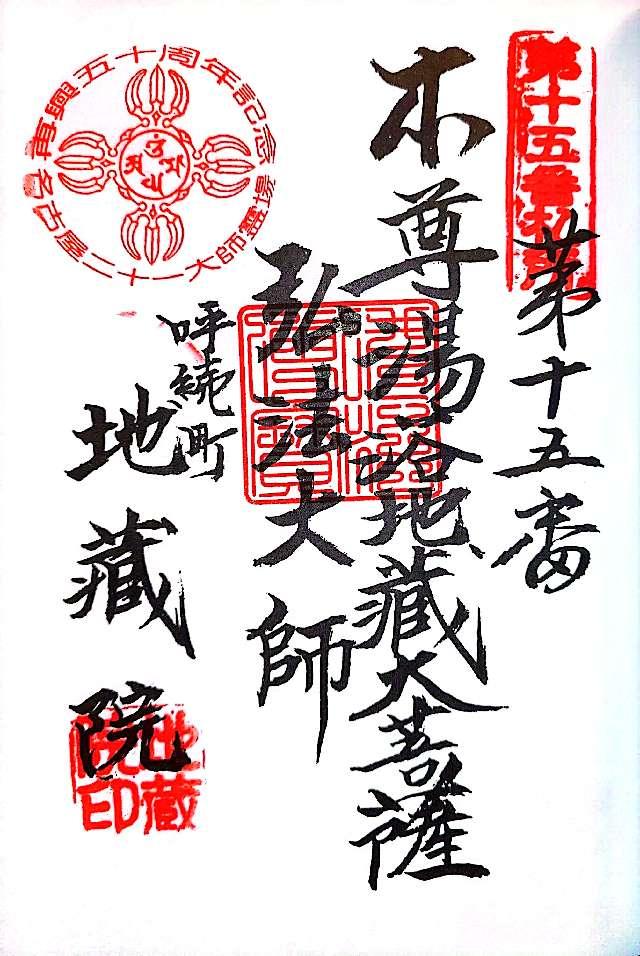 第十五番札所
第十五番
本尊湯浴地藏大菩薩
弘法大師
呼続町
地藏院
再興五十周年記念
名古屋二十一大師霊場
地蔵院印